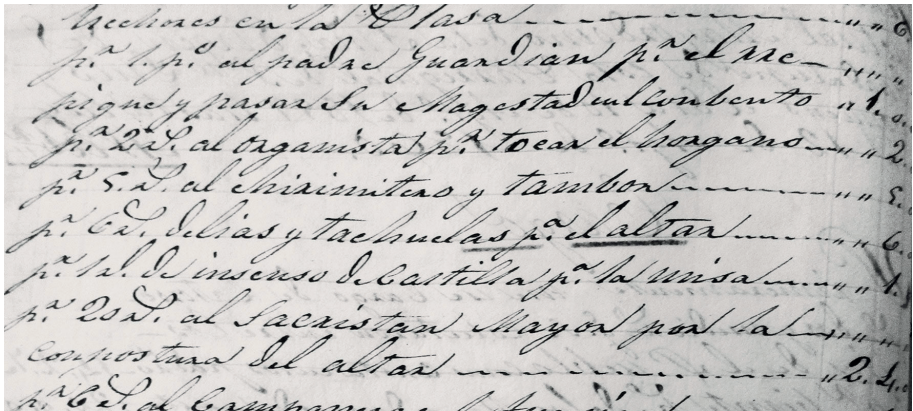 hechores en la Clasa 6.
pr. 1. po. al padre Guardian pa. el rre-
pique y pasar Su Magestad en el Conbento 1.
pr. 2 rs. al organista pa. tocar el horgano 2.
pr. 5. rs. al chirimitero y tambor 5.
pr. 6 rs. de lias y tachuelas pa. el altar 6.
pr. 1 rl. de insenso de Castilla pa. la misa 1.
pr. 20 rs. al Sacristan Mayor por la
conpostura del altar 2. 4.
pr. 6 rs. al